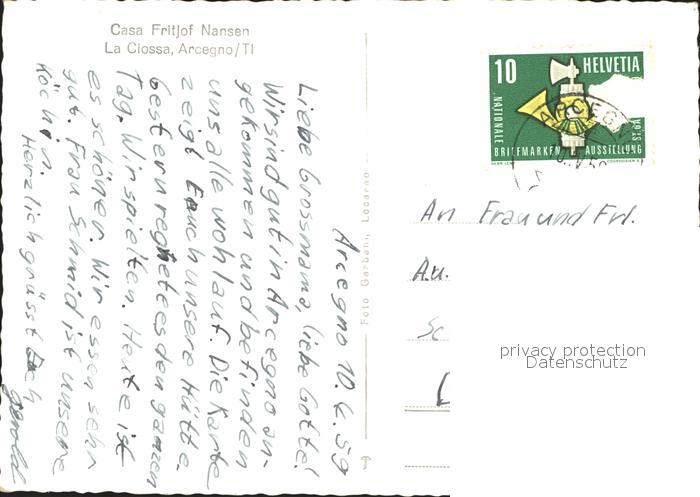 Casa Fritjof Nansen
La Ciossa, Arcegno/TI
Arcegno 10.
59
Liebe Grossmama, liebe Gotte!
Wir sind gut in Arcegno an-
gekommen und befinden
uns alle wohlauf. Die Karte
zeigt Euch unsere Hütte.
Gestern regnete es den ganzen
Tag. Wir spielten. Heute ist
es schöner. Wir essen sehr
gut. Frau Schmid ist unsere
Köchin.
Herzlich grüsst Euch
Gerold
Foto Garbani, Locarno
10 HELVETIA
NATIONALE
BRIEFMARKEN AUSSTELLUNG
COURVOISIER
ARCEGNO
An Frau und Frl.
A.u.
Sc
privacy protection
Datenschutz